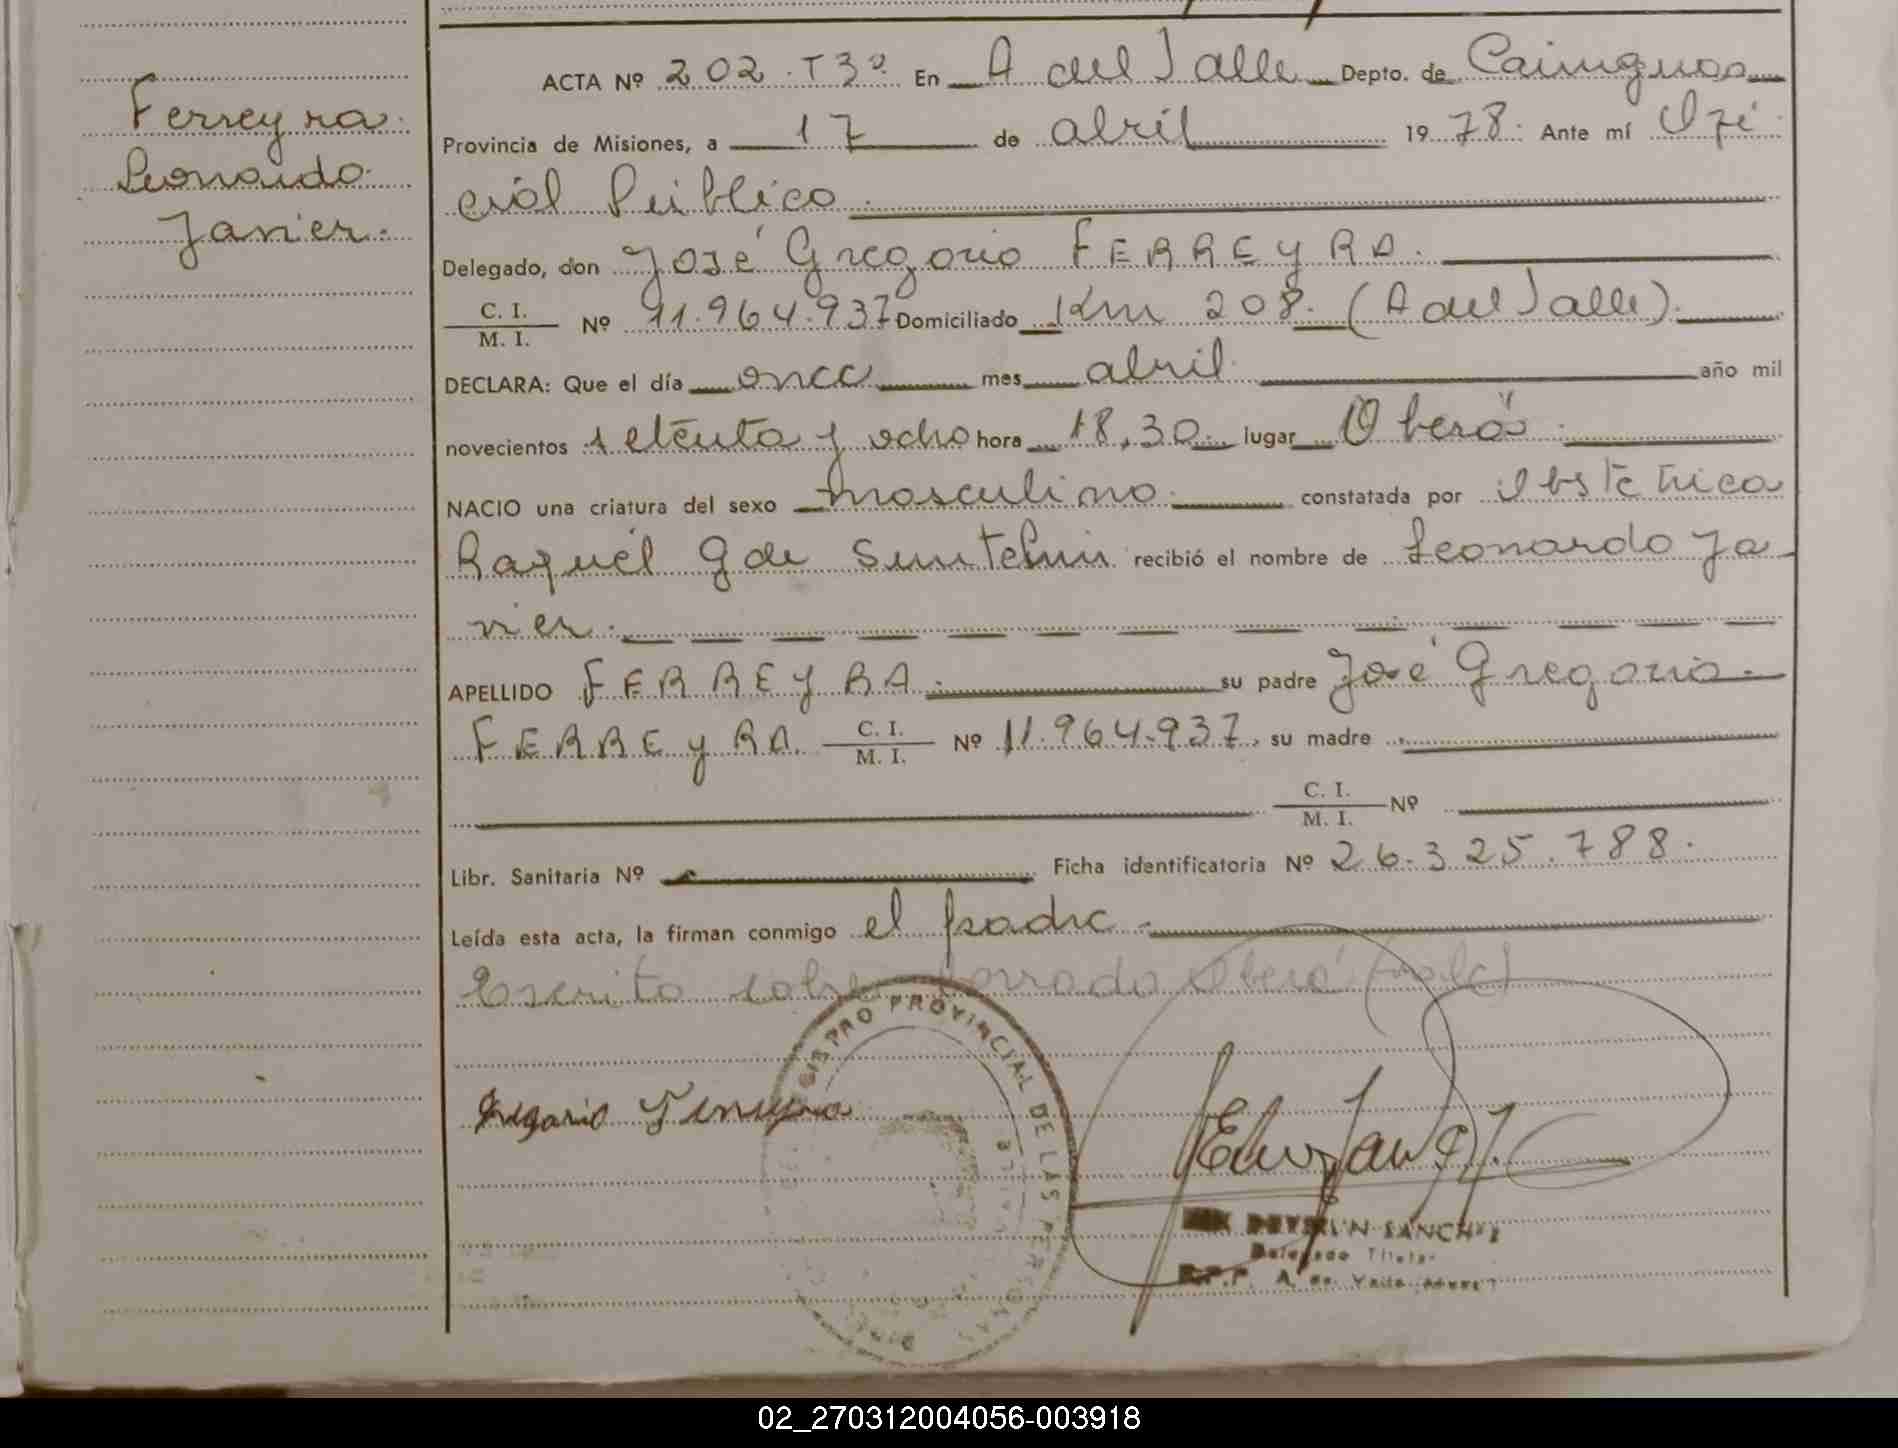 Ferreyra
Leonardo
Javier.
ACTA Nº 202 - T3º. En A del Valle Depto. de Cainguas
Provincia de Misiones, a 17 de abril 1978. Ante mí Ofi
cial Público
Delegado, don José Gregorio FERREYRA.
C. I.
M. I.
Nº 11.964.937 Domiciliado Km 208. (A del Valle).
DECLARA: Que el día once mes abril año mil
novecientos setenta y ocho hora 18,30 lugar Oberá
NACIO una criatura del sexo masculino. constatada por Obstetrica
Raquel G de recibió el nombre de Leonardo Ja
vier.
APELLIDO FERREYRA su padre José Gregorio
FERREYRA. C. I.
M. I.
Nº 11.964.937, su madre
C. I.
M. I.
Nº
Libr. Sanitaria Nº Ficha identificatoria Nº 26.325.788.
Leída esta acta, la firman conmigo el padre
Escrito sobre borrado Oberá (vale)
REGISTRO PROVINCIAL DE LAS PERSONAS
Gregorio Ferreyra
SANCHEZ
Delegado Titular
R.P.P. A. del Valle
02_270312004056-003918